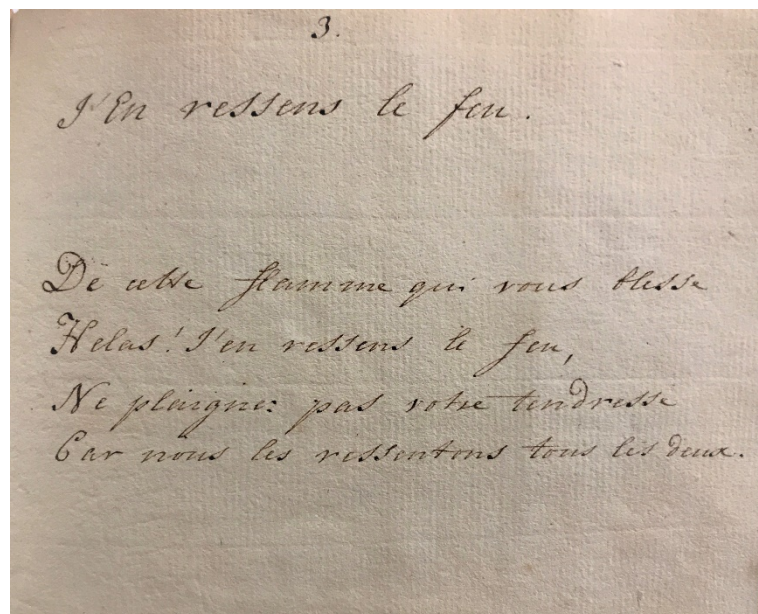 3.
J'En ressens le feu.
De cette flamme qui vous blesse
Helas! J'en ressens le feu,
Ne plaignez pas votre tendresse
Car nous les ressentons tous les deux.